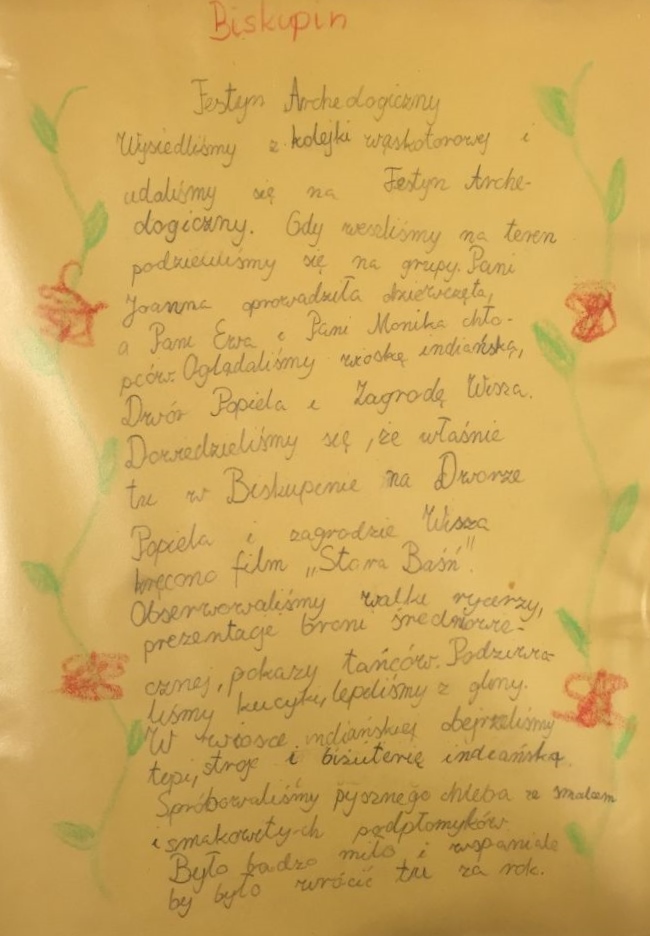 Biskupin
Festyn Archeologiczny
Wysiedliśmy z kolejki wąskotorowej i
udaliśmy się na Festyn Arche-
ologiczny. Gdy weszliśmy na teren
podzieliliśmy się na grupy. Pani
Joanna oprowadziła dziewczęta,
a Pani Ewa i Pani Monika chło-
pców. Oglądaliśmy wioskę indiańską,
Dwór Popiela i Zagrodę Wisza.
Dowiedzieliśmy się, że właśnie
tu w Biskupinie na Dworze
Popiela i zagrodzie Wisza
kręcono film „Stara Baśń".
Obserwowaliśmy walki rycerzy,
prezentacje broni średniowie-
cznej, pokazy tańców. Podziwia-
liśmy kucyki, lepiliśmy z gliny.
W wiosce indiańskiej obejrzeliśmy
tipi, stroje i biżuterię indiańską.
Spróbowaliśmy pysznego chleba ze smalcem
i smakowitych podpłomyków
Było badzo miło i wspaniale
by było wrócić tu za rok.